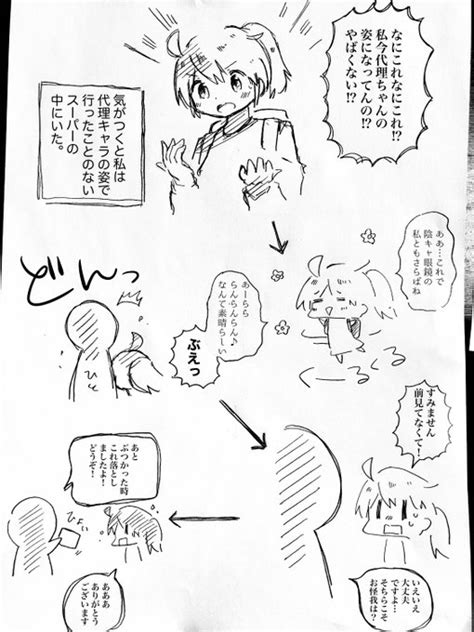 なにこれなにこれ!?
私今代理ちゃんの
姿になってんの!?
やばくない!?
気がつくと私は
代理キャラの姿で
行ったことのない
スーパーの
中にいた。
ああ…これで
陰キャ眼鏡の
私ともさらばね
あーらら
らんらんらん♪
なんて素晴らしい
ぶえっ
どんっ
すみません
前見てなくて!
いえいえ
大丈夫
ですよ…
そちらこそ
お怪我は?
あと
ぶつかった時
これ落とし
ましたよ!
どうぞ!
ひょい
あああ
ありがとう
ございます